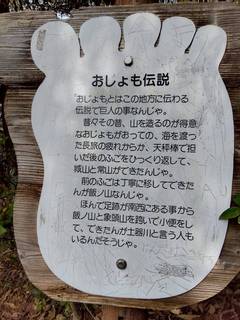 おじょも伝説
おじょもとはこの地方に伝わる
伝説で巨人の事なんじゃ。
昔々その昔、山を造るのが得意
なおじょもがおっての、海を渡っ
た長旅の疲れからか、天秤棒で担
いだ後のふごをひっくり返して、
城山と常山ができたんじゃ。
前のふごは丁寧に移してできた
んが飯ノ山なんじゃ。
ほんで足跡が南西にある事から
飯ノ山と象頭山を跨いで小便をし
て、できたんが土器川と言う人も
いるんだそうじゃ。